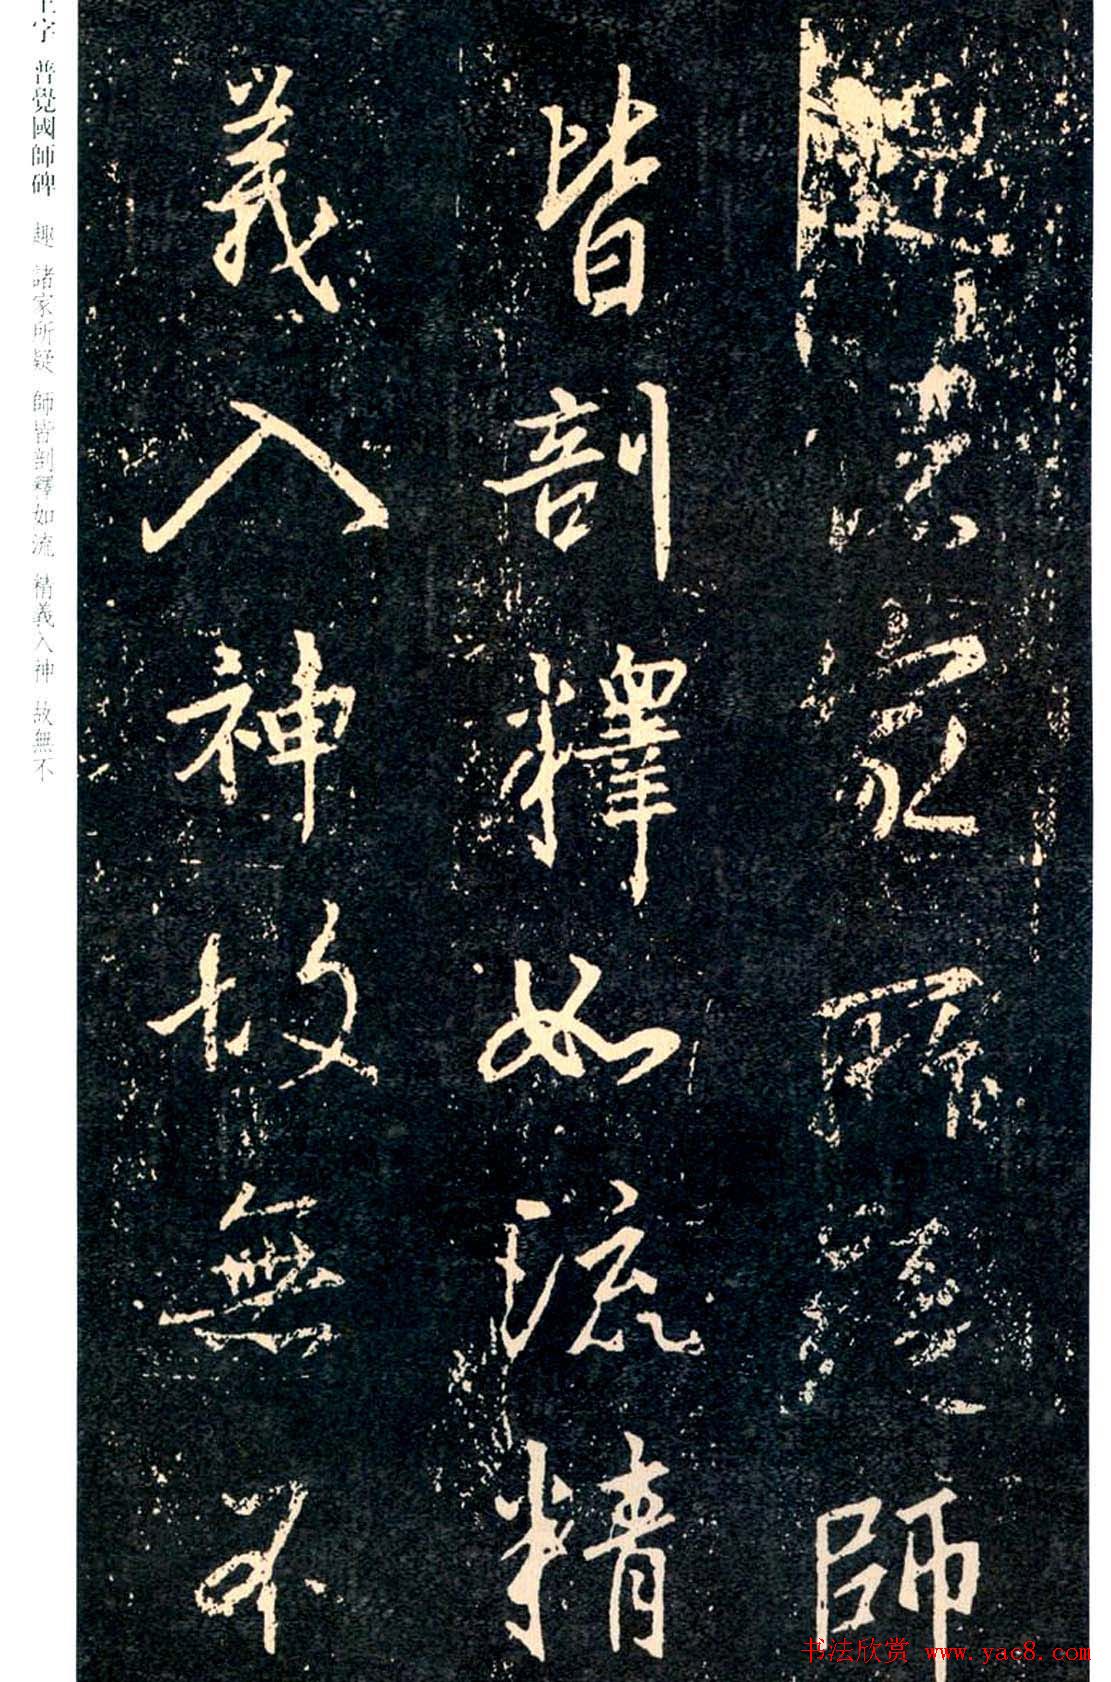 趣諸家所疑師
皆剖釋如流精
義入神故無不
王字 普覺國師碑 趣 諸家所疑 師皆剖釋如流 精義入神 故無不
书法欣赏 www.yac8.com